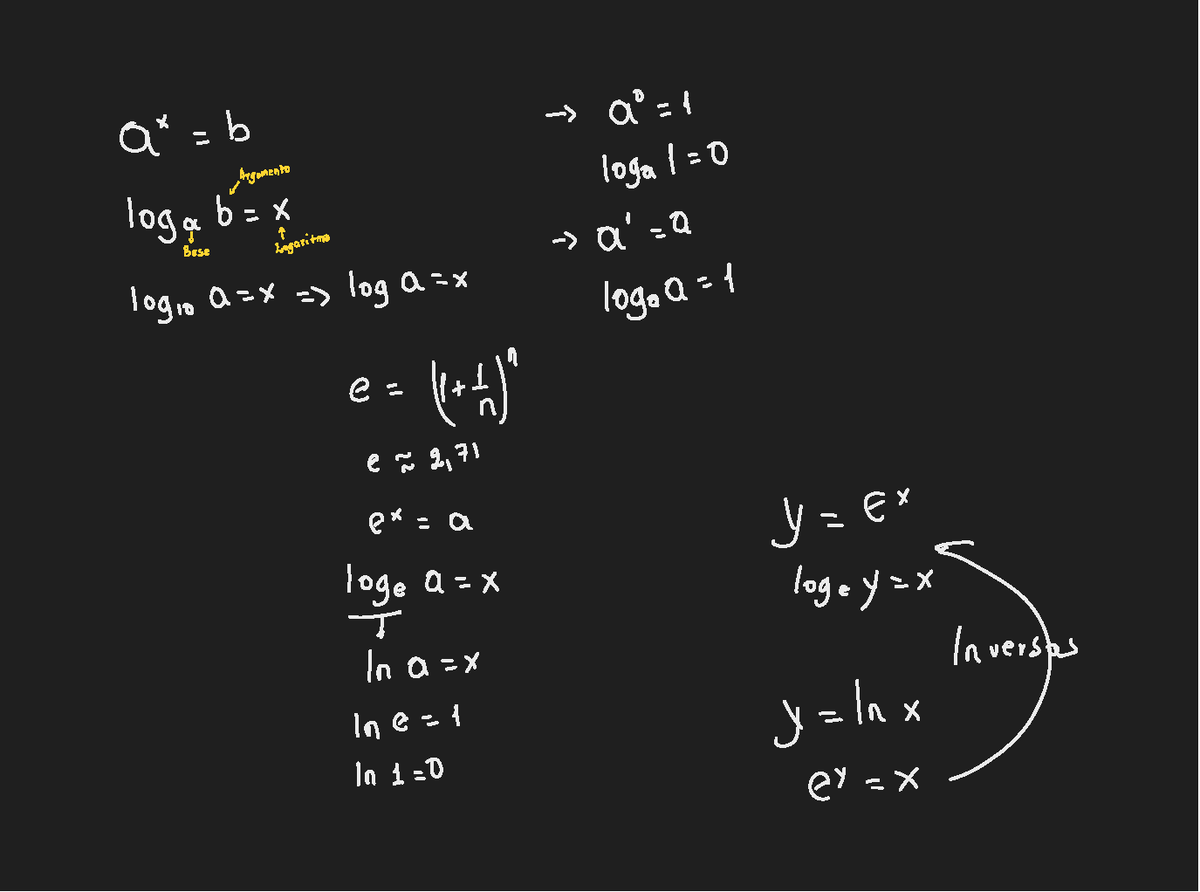 aˣ = b
Argumento
logₐ b = x
Base
Logaritmo
log₁₀ a = x => log a = x
-> a⁰ = 1
logₐ 1 = 0
-> a¹ = a
logₐ a = 1
e = (1 + 1/n)ⁿ
e ≈ 2,71
eˣ = a
logₑ a = x
ln a = x
ln e = 1
ln 1 = 0
y = eˣ
logₑ y = x
Inversas
y = ln x
eʸ = x